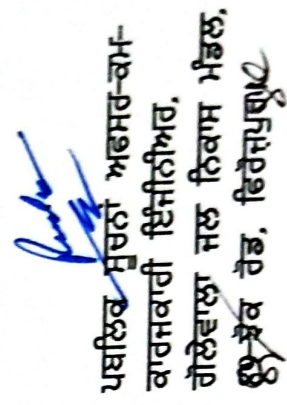 ਪਬਲਿਕ ਸੂਚਨਾ ਅਫਸਰ-ਕਮ-
ਕਾਰਜਕਾਰੀ ਇੰਜੀਨੀਅਰ,
ਗੋਲੇਵਾਲਾ ਜਲ ਨਿਕਾਸ ਮੰਡਲ,
ਰੋਡ, ਫਿਰੋਜਪੁਰ